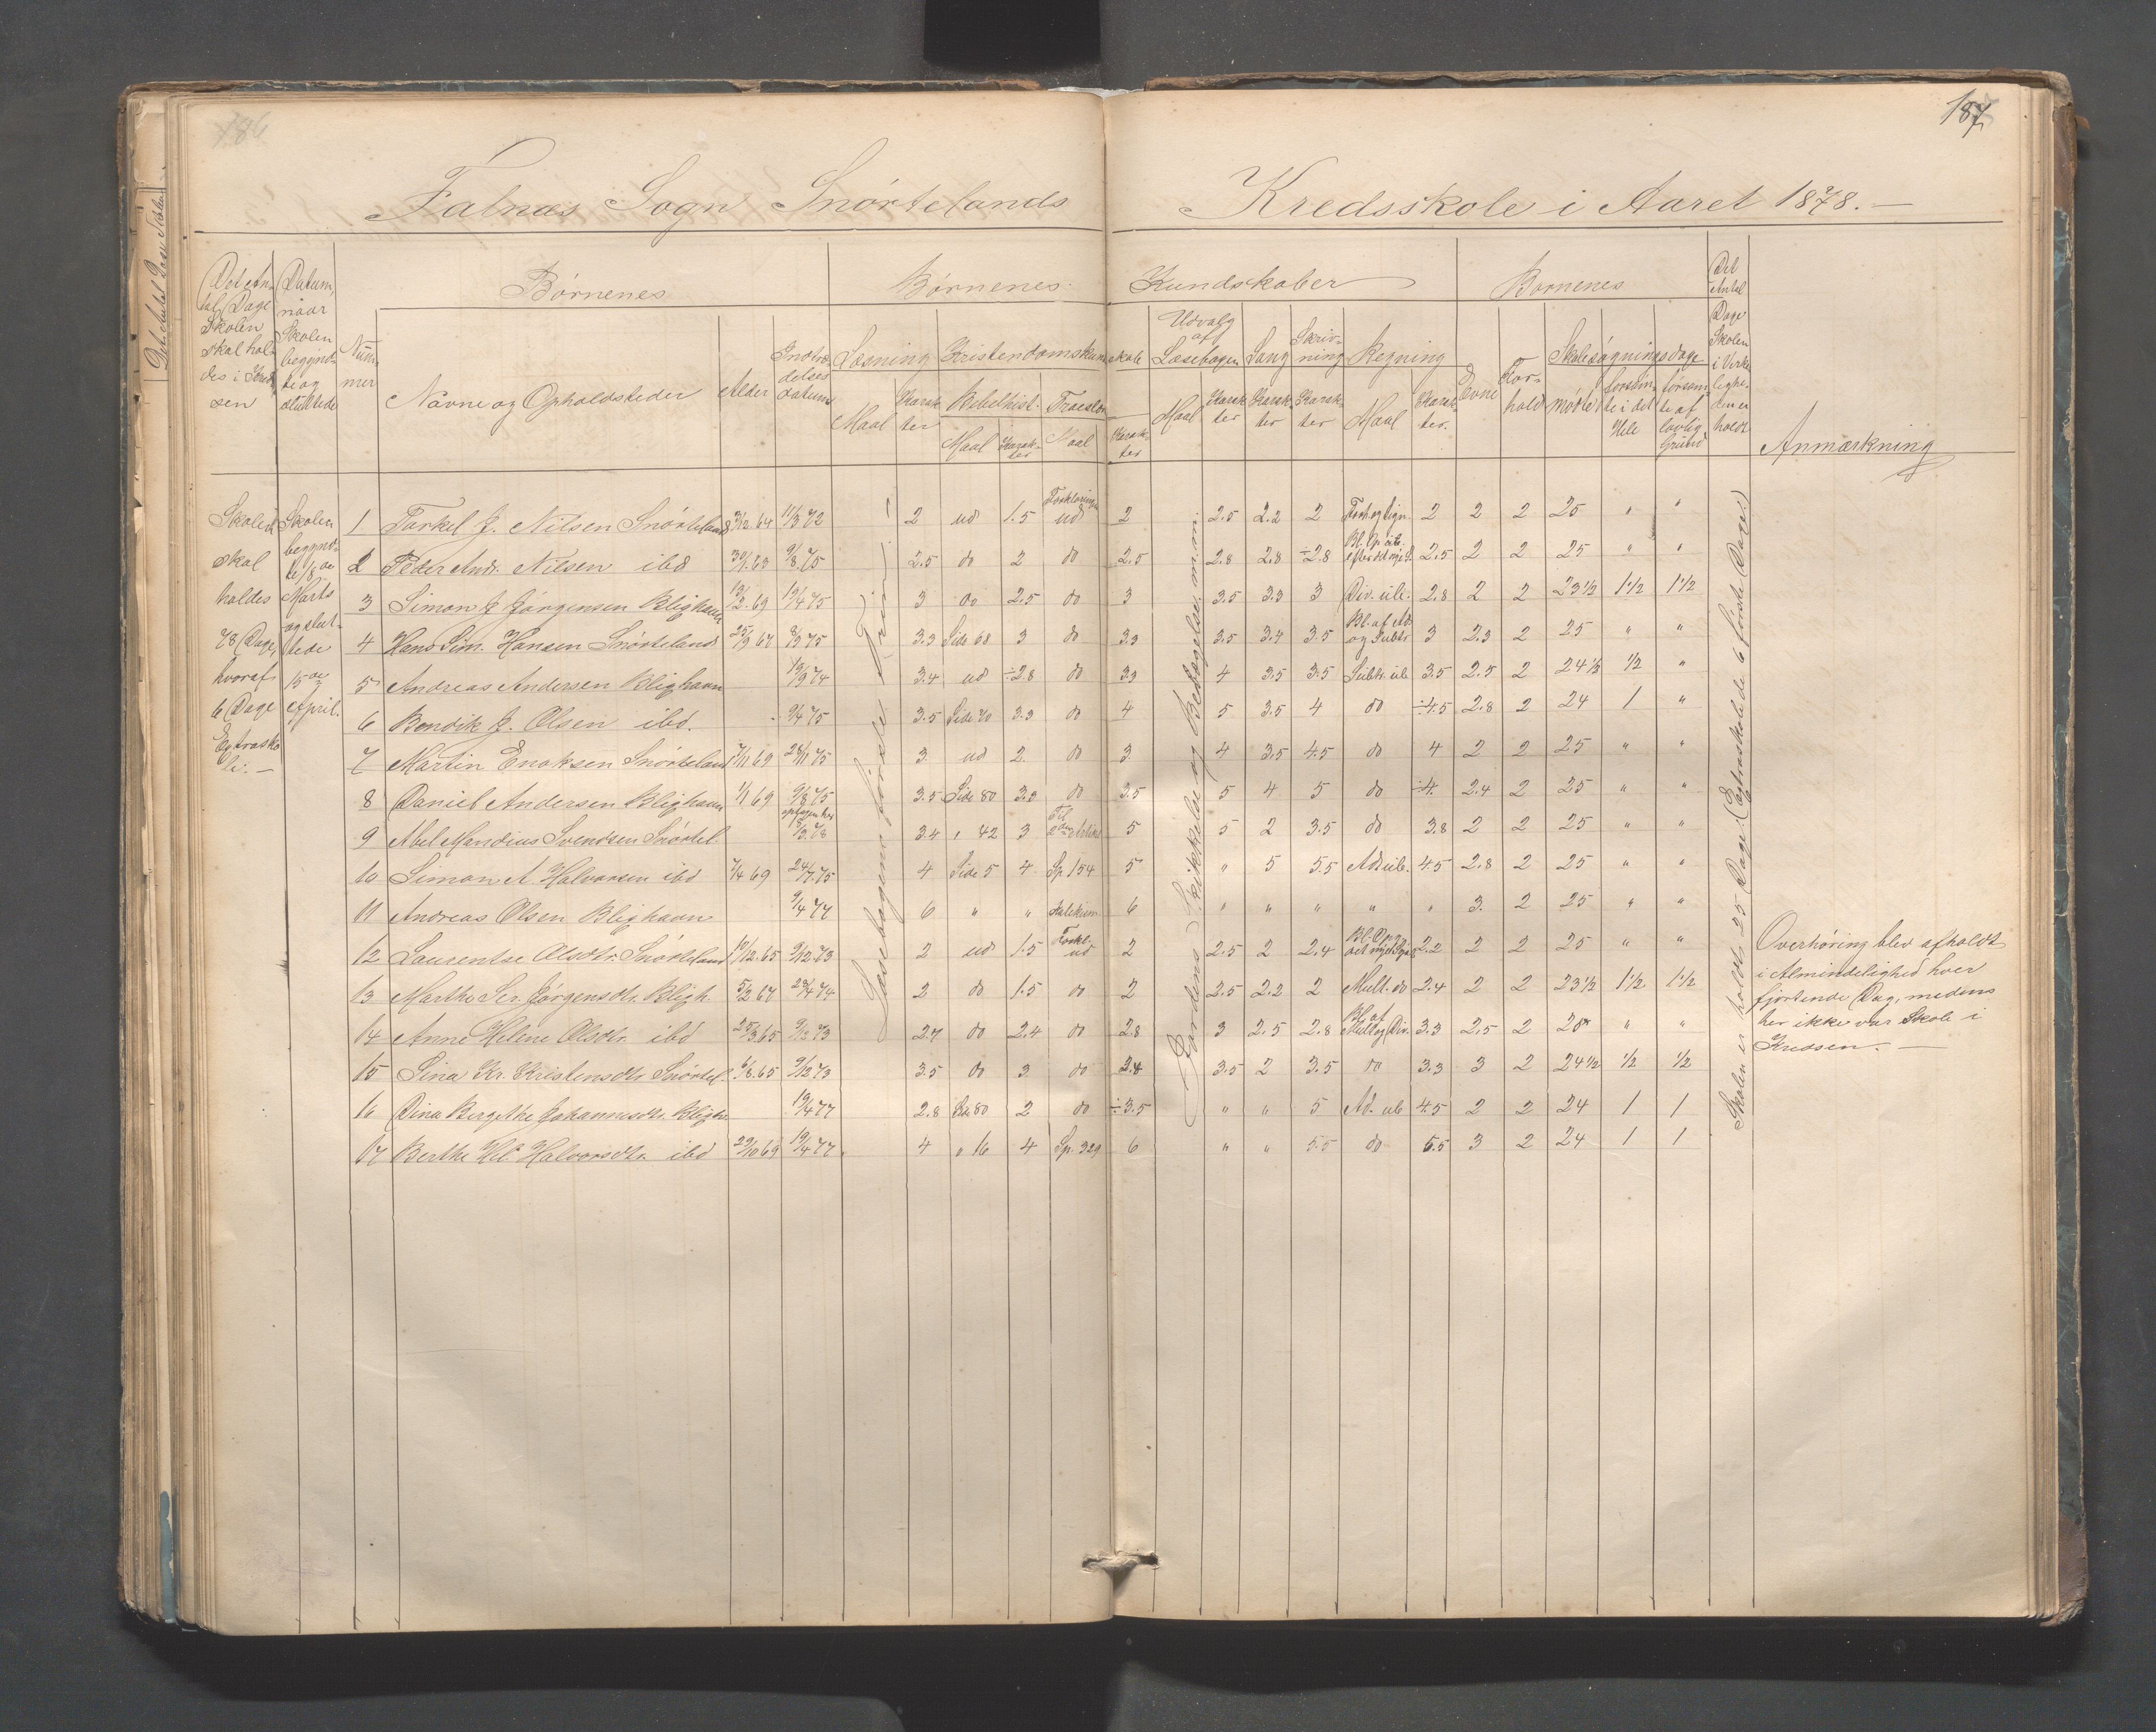 186
187
Falnæs Sogn Snørtelands Kredsskole i Aaret 1878. —
Det Antal Dage Skolen skal holdes i Kredsen
Datum, naar Skolen begyndte og sluttede
Nummer
Børnenes
Navne og Opholdsteder
Alder
Indtrædelses datum
Børnenes Kundskaber
Læsning
Maal
Karakter
Kristendomskundskab
Bibelhist.
Maal
Karakter
Troeslære
Maal
Karakter
Udvalg af Læsebogen
Maal
Karakter
Sang
Karakter
Skrivning
Karakter
Regning
Maal
Karakter.
Børnenes
Evne
Forhold
Skolesøgningsdage
mødte
forsømte i det Hele
forsømte af lovlig Grund
Det Antal Dage Skolen i Virkeligheden er holdt
Anmærkning
Skolen skal holdes 78 Dage, hvoraf 6 Dage Extraskole. —
Skolen begyndte 18de Marts og sluttede 15de April.
Læsebogens første Trin
Jordens Skikkelse og Bevægelse m.m.
Skolen er holdt 25 Dage. (Extraskole de 6 første Dage.)
1 Torkel J. Nilsen Snørteland 3/12.64 11/3 72 2 ud 1.5 Forklaringen ud 2 2.5 2.2 2 Forh. og lign. 2 2 2 25 " "
2 Peder Andr. Nilsen ibd 30/1.63 9/8.75 2.5 do 2 do 2.5 2.8 2.8 ÷2.8 2.5 2 2 25 " "
3 Simon J. Jørgensen Blighavn 13/2.69 19/4 75 3 do 2.5 do 3 3.5 3.3 3 Div. ub. 2.8 2 2 23 1/2 1 1/2 1 1/2
4 Hans Sim. Hansen Snørteland 25/9 67 8/3 75 3.3 Side 68 3 do 3.3 3.5 3.4 3.5 Bl. af Ad. og Subtr. 3 2.3 2 25 " "
5 Andreas Andersen Blighavn 19/9 74 3.4 ud ÷2.8 do 3.3 4 3.5 3.5 Subtr. ub 3.5 2.5 2 24 1/2 1/2 "
6 Bendik J. Olsen ibd. 9/4 75 3.5 Side 70 3.3 do 4 5 3.5 4 do ÷4.5 2.8 2 24 1 "
7 Martin Enoksen Snørteland 7/11 69 28/11 75 3 ud 2 do 3 4 3.5 4.5 do 4 2 2 25 " "
8 Daniel Andersen Blighavn 1/1 69 9/8 75 3.5 Side 80 3.3 do 3.5 5 4 5 do ÷4. 2.4 2 25 " "
9 Abel Mandius Svendsen Snørtel. 8/3.78 3.4 " 42 3 Til 2den Artikel 5 5 2 3.5 do 3.8 2 2 25 " "
10 Simon A Halvorsen ibd 7/4 69 24/7.75 4 Side 5 4 Sp. 154 5 " 5 5.5 Ad ub. 4.5 2.8 2 25 " "
11 Andreas Olsen Blighavn 9/4 77 6 " " Katekism. 6 " " " " " 3. 2 25 " "
12 Laurentse Olsdtr. Snørteland 10/12.65 9/12.73 2 ud 1.5 Forkl. ud 2 2.5 2 2.4 2.2 2 2 25 " "
13 Marthe Ser. Jørgensdtr. Bligh. 5/2 67 23/4 74 2 do 1.5 do 2 2.5 2.2 2 Mult. do 2.4 2 2 23 1/2 1 1/2 1 1/2
14 Anne Helene Olsdtr. ibd 25/3.65 9/12 73 2.7 do 2.4 do 2.8 3 2.5 2.8 Bl. af Mult og Div. 3.3 2.5 2 25 " "
15 Sina Kr. Kristensdtr. Snørtel. 6/8.65 9/12 73 3.5 do 3 do 2.8 3.5 2 3.5 do 3.3 3 2 24 1/2 1/2 1/2
16 Dina Bergithe Johannesdtr. Bligh. 19/4 77 2.8 Side 80 2 do ÷3.5 " " 5 Ad. ub 4.5 2 2 24 1 1
17 Berthe Hel. Halvorsdtr. ibd 29/10 69 19/4 77. 4 " 16 4 Sp. 329 6 " " 5.5 do 5.5 3 2 24 1 1
Overhøring blev afholdt
i Almindelighed hver
fjortende Dag, medens
her ikke var Skole i
Kredsen. —